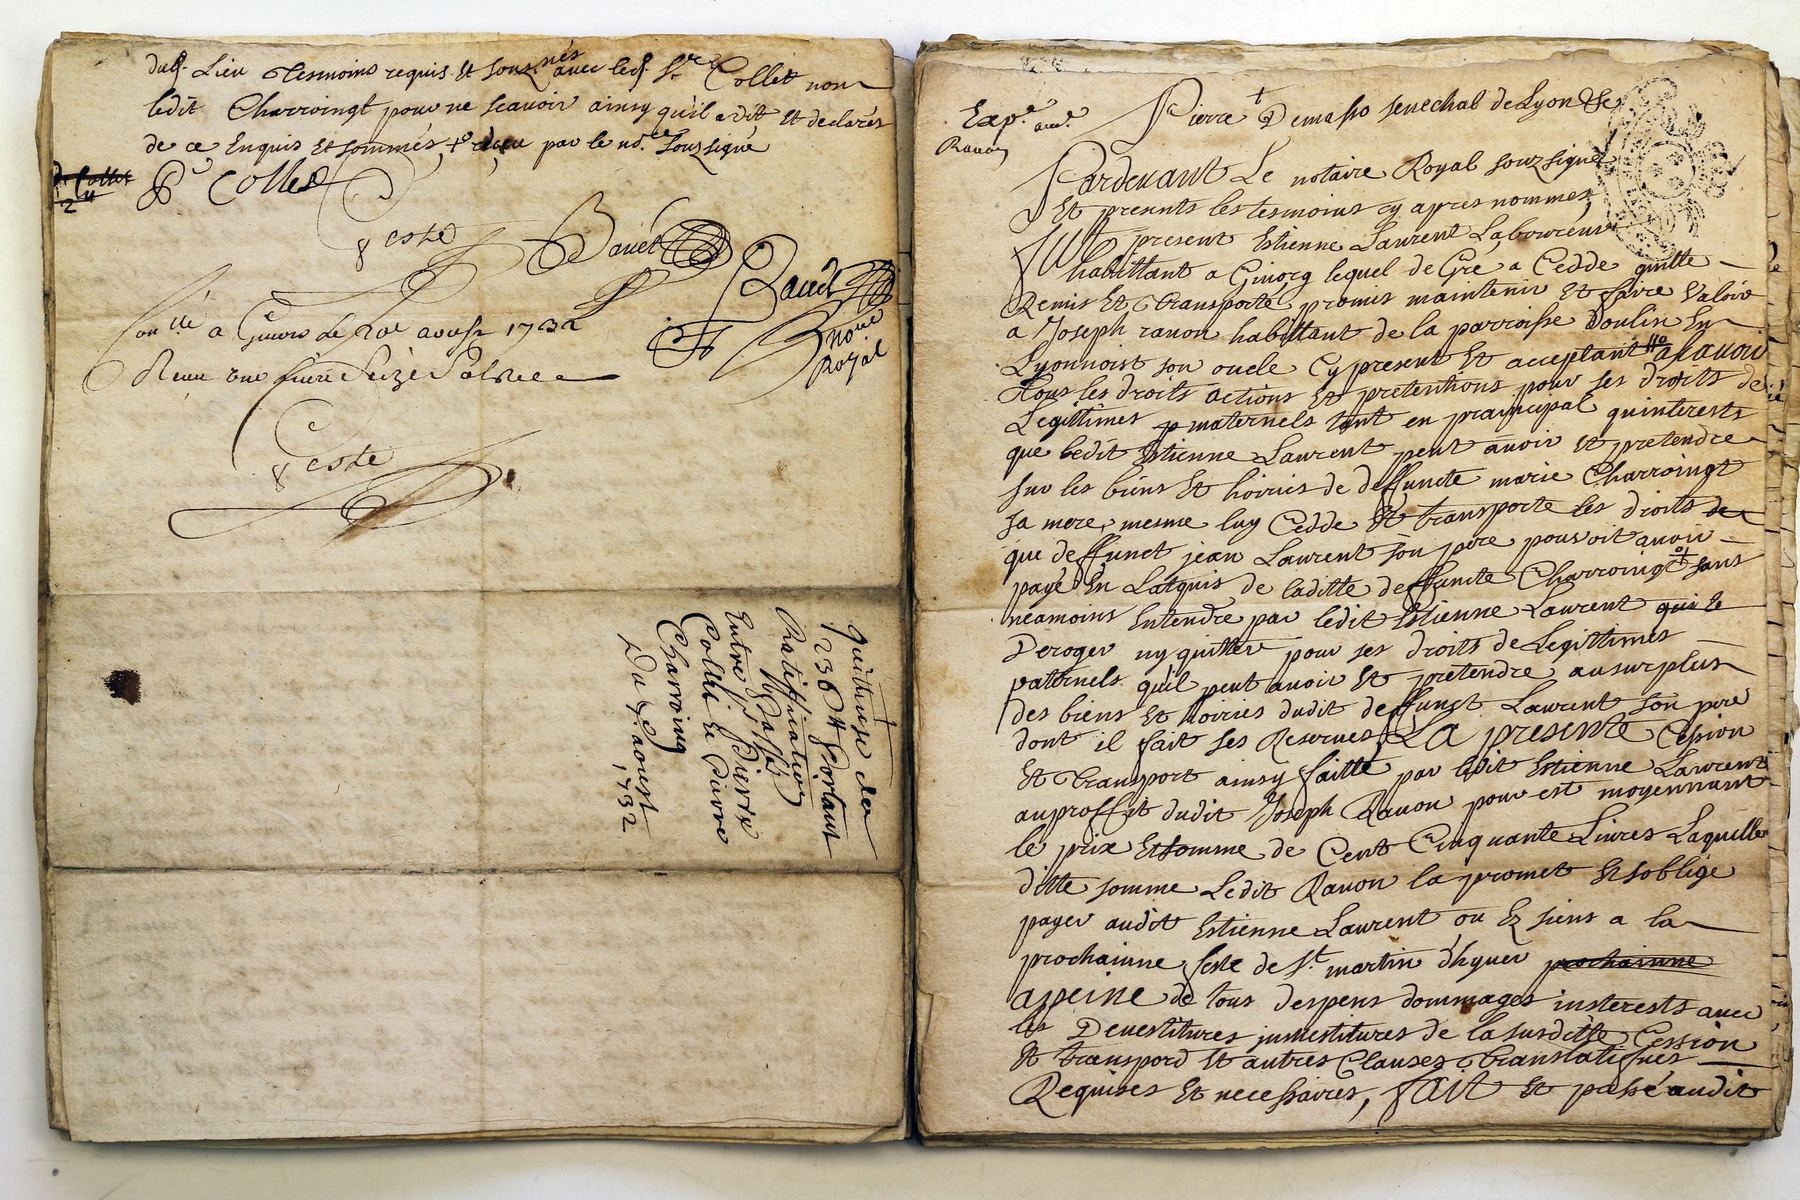 dud. Lieu tesmoins requis et souz.nés avec led. Sr. Collet non
ledit Charroingt pour ne scavoir ainsy qu'il a dit et declarés
de ce Enquis et sommés, par le no.re souzsigné
Collet
Coste
Ravet
Ravet
no.re Royal
a le 20e aoust 1732
Receu une livre seize sols
Coste
quittance de
236 tt portant
Ratiffication
Entre Pierre
Collet et Pierre
Charroing
Du aoust
1732
Exp.e
Ravon
Pierre Demasso senechal de Lyon &c
Pardevant Le notaire Royal souzsigné
Et presents les tesmoins cy apres nommes,
fut present Estienne Laurent Laboureur
habittant a lequel de Gré a Cedde quitte
Remis Et transporté promis maintenir Et faire Valoir
a Joseph ravon habittant de la parroisse Doulin En
Lyonnoist son oncle Cy present Et acceptant ascavoir
Tous les droits actions Et pretentions pour ses droits de
Legittimes maternels tant en principal qu'interests
que ledit Estienne Laurent peut avoir Et pretendre
sur les biens Et hoiries de deffuncte marie Charroingt
sa mere, mesme luy Cedde Et transporte les droits de
que deffunct jean Laurent son pere pouvoit avoir
payé En Lacquis de laditte deffuncte Charroingt sans
neamoins Entendre par ledit Estienne Laurent
Deroger ny quitter pour ses droits de Legittimes
paternels qu'il peut avoir Et pretendre au surplus
des biens Et hoiries dudit deffunct Laurent son pere
dont il fait ses Reserves, La presente Cession
Et transport ainsy faitte par ledit Estienne Laurent
au proffit dudit Joseph Ravon pour est moyennant
le prix Et somme de Cent Cinquante Livres Laquelle
ditte somme Ledit Ravon la promet Et s'oblige
payer audit Estienne Laurent ou Ez siens a la
prochainne feste de St. martin d'hyver prochainne
a peine de tous despens dommages insterests avec
les Devestitures jnvestitures de la susditte Cession
Et transpord Et autres Clauses translatifves
Requises Et necessaires, fait Et passé audit